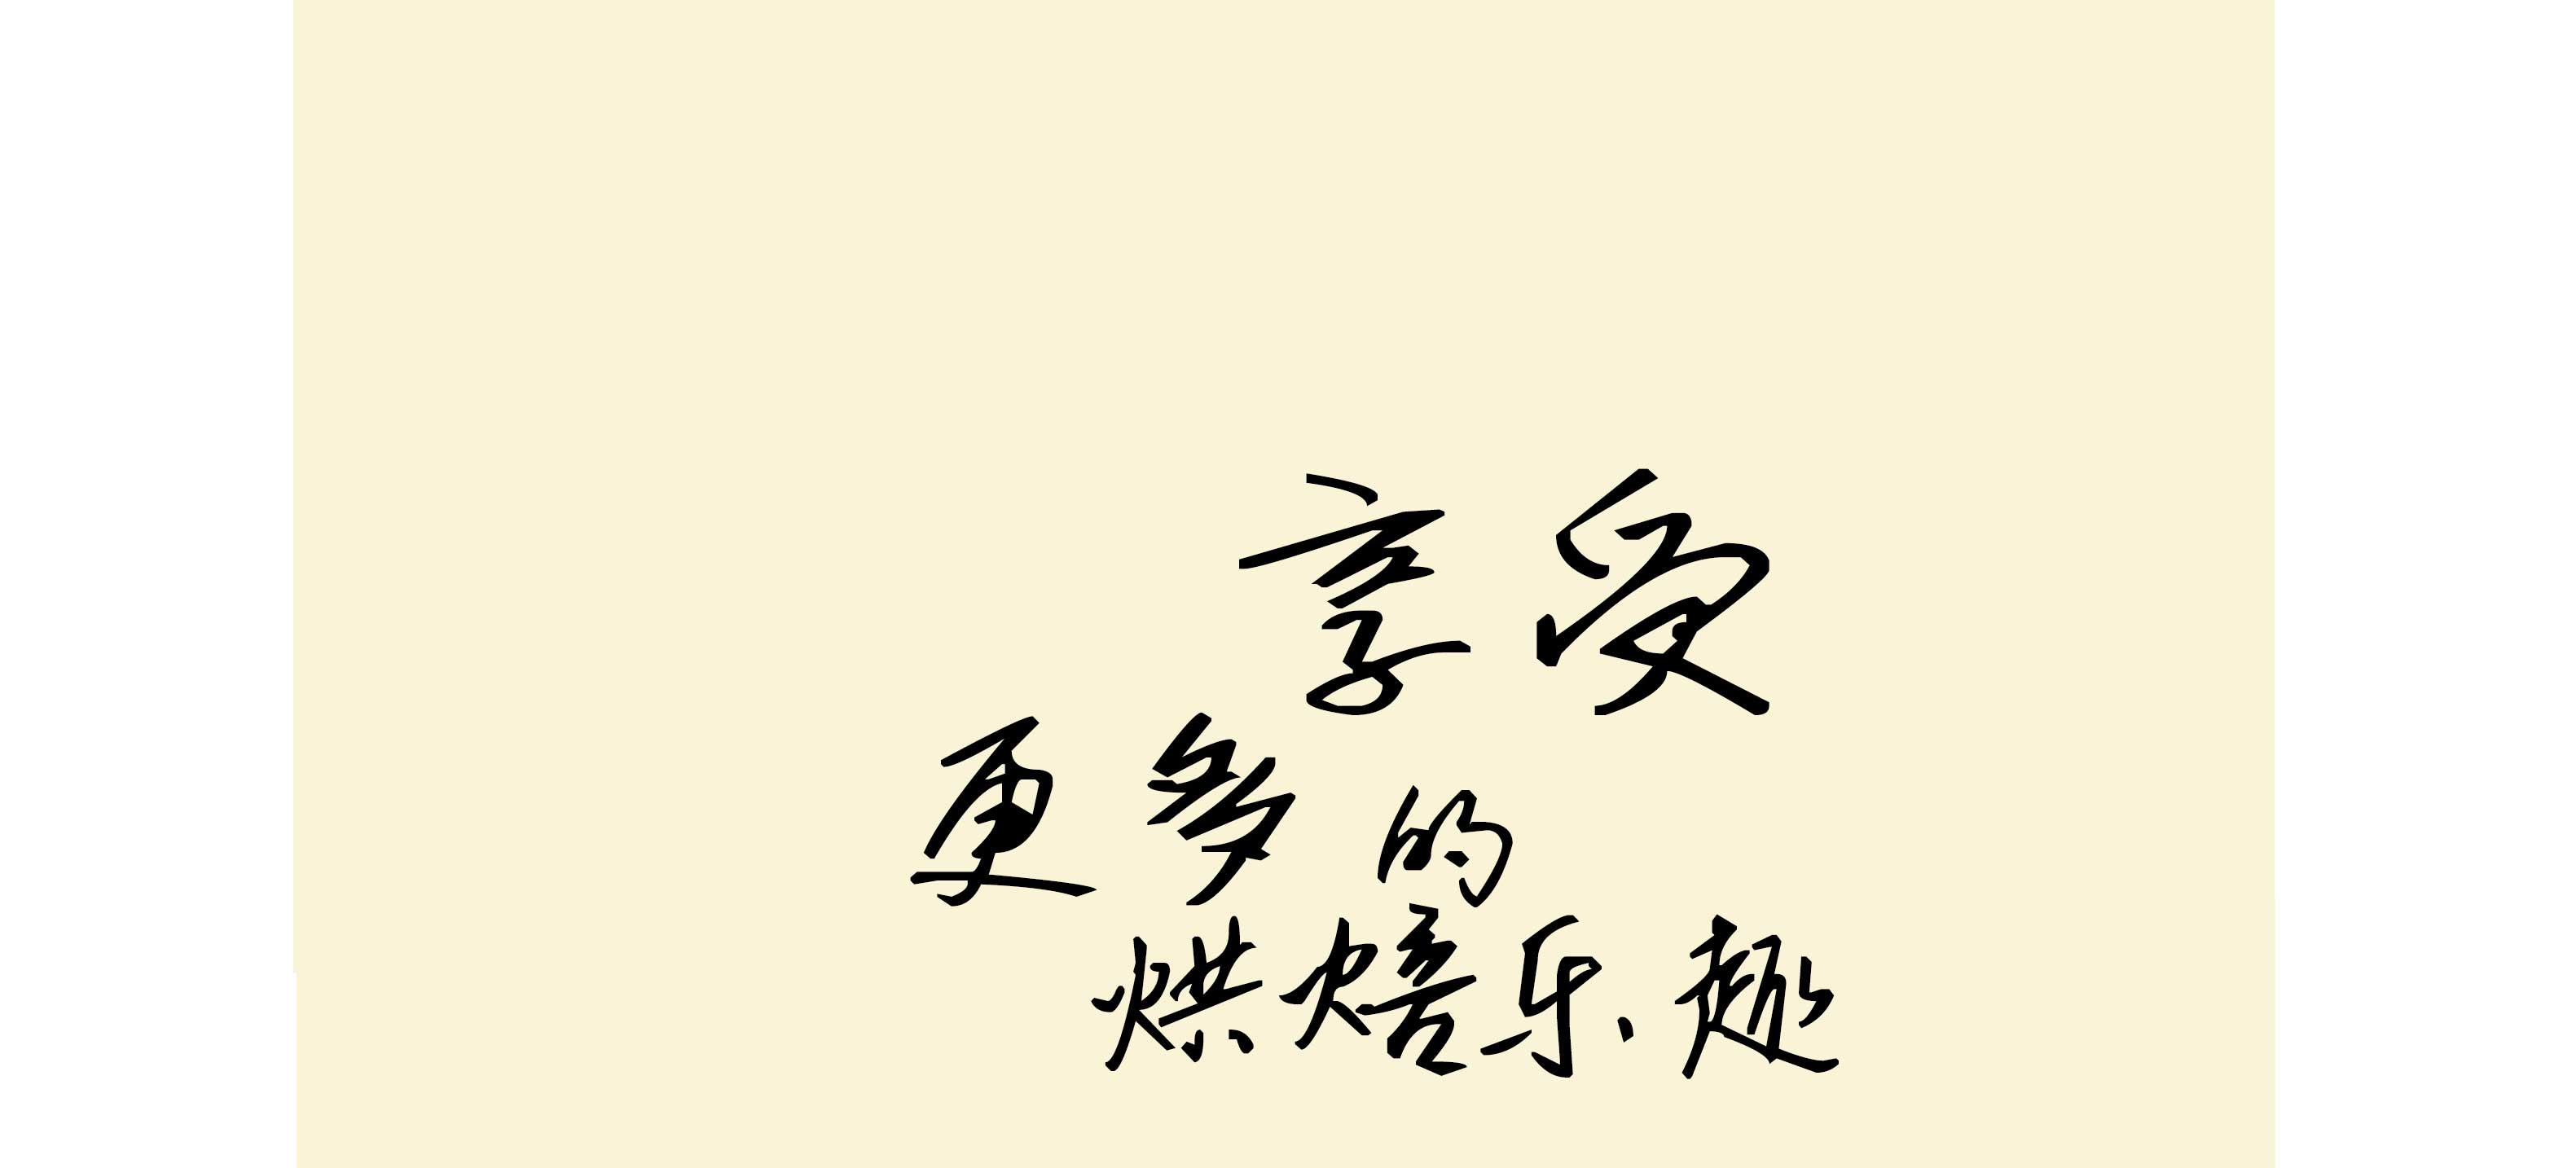 享受
更多的
烘焙乐趣